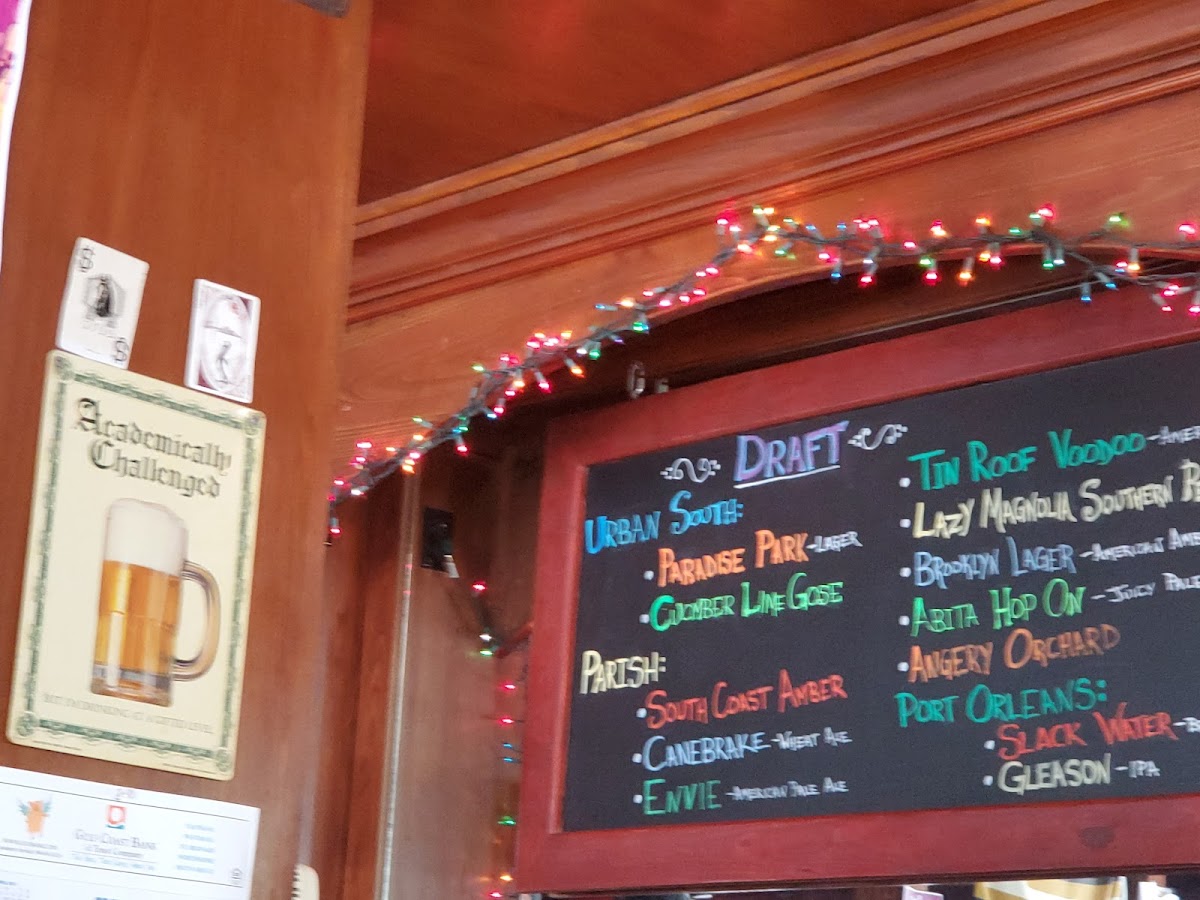 $
$
Academically
Challenged
BUT I'M DRINKING AT A GIFTED LEVEL
GULF COAST BANK
& Trust Company
DRAFT
URBAN SOUTH:
• PARADISE PARK -LAGER
• CUCMBER LIME GOSE
PARISH:
• SOUTH COAST AMBER
• CANEBRAKE -WHEAT ALE
• ENVIE -AMERICAN PALE ALE
• TIN ROOF VOODOO -AMER
• LAZY MAGNOLIA SOUTHERN
• BROOKLYN LAGER -AMERICAN AMB
• ABITA HOP ON - JUICY PALE
• ANGERY ORCHARD
PORT ORLEANS:
• SLACK WATER -
• GLEASON -IPA